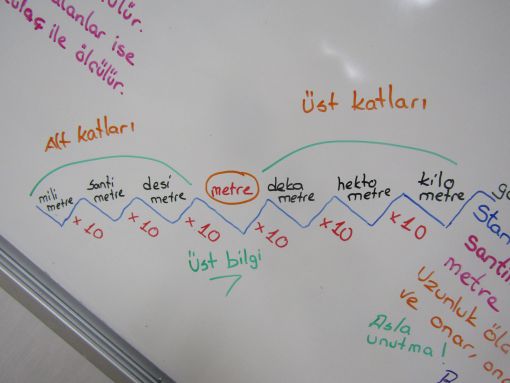 ülür.
alanlar ise
kulaç ile ölçülür.
Üst katları
Alt katları
mili metre
santi metre
desi metre
metre
deka metre
hekto metre
kilo metre
x10 x10 x10 x10 x10 x10
Üst bilgi
Stan
santi
metre
Uzunluk öl
ve onar, on
Asla
unutma!